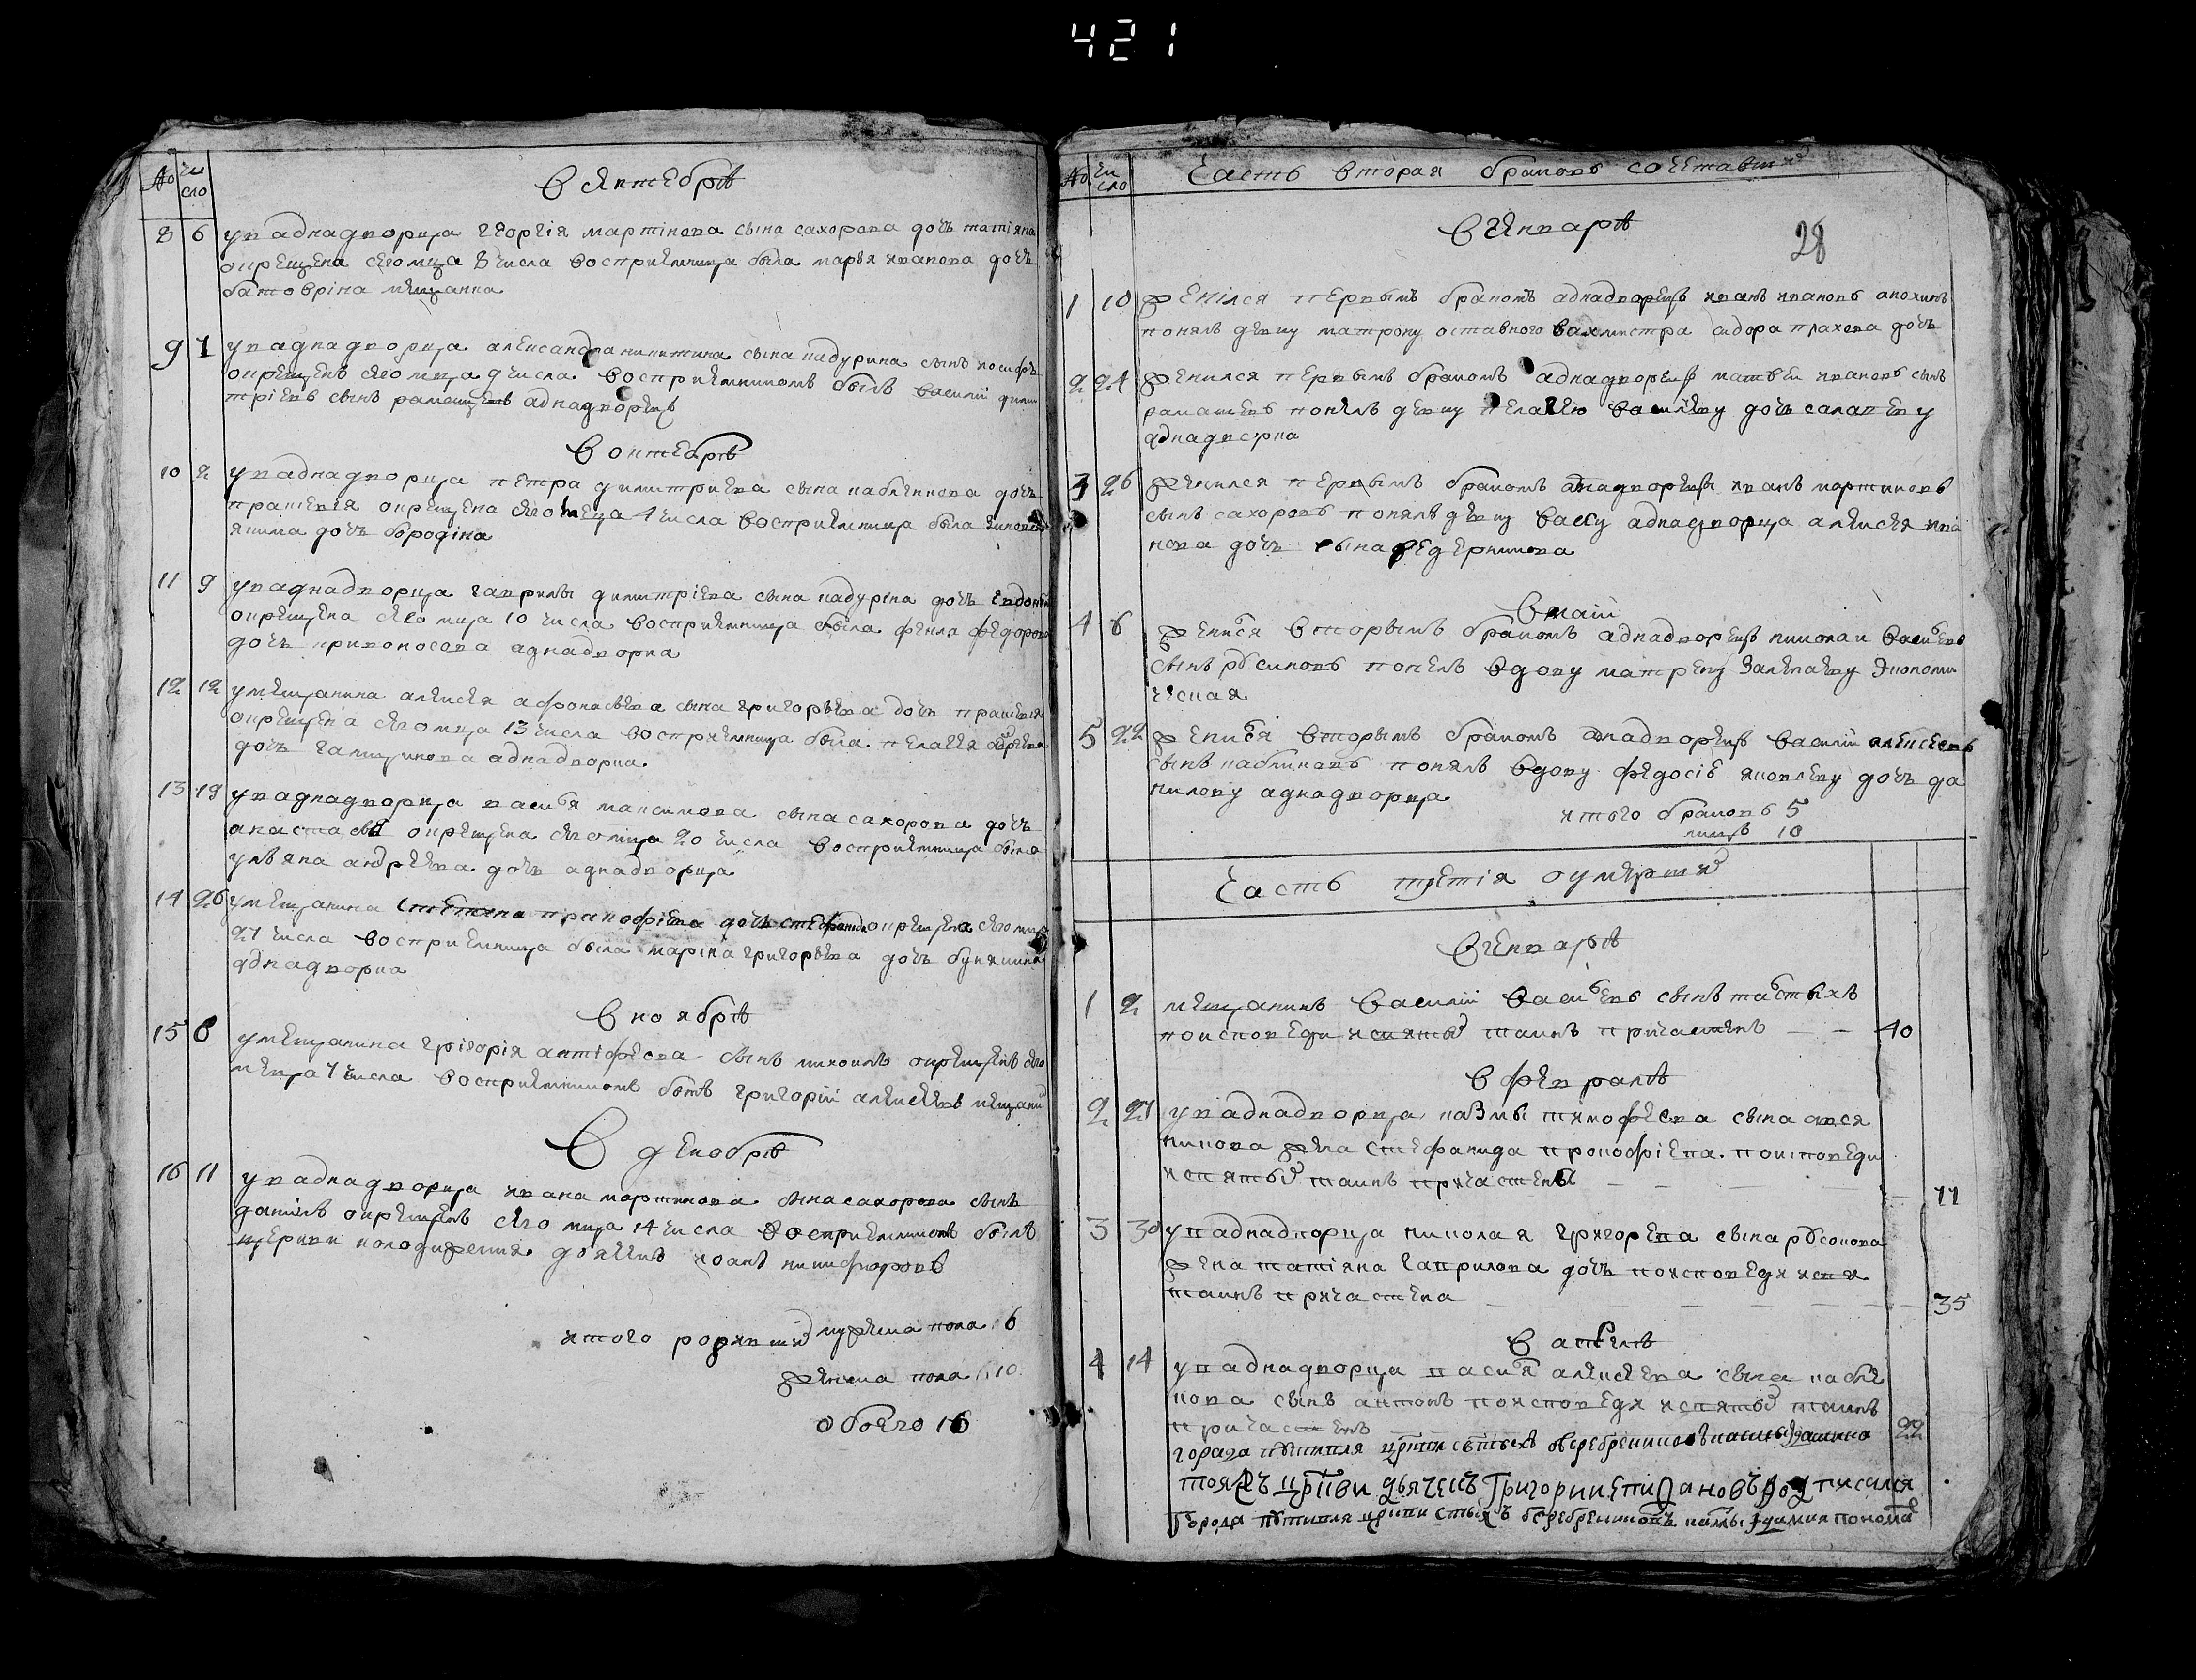 421
№ число
В сентебрѣ
8 6 ув аднадворца георгія мартінова сына сахорова доч татіяна
окрещена сего мца 8 числа восприемница была марья иванова доч
батовріна мещанка
9 7 уваднадворца александра никитина сына кадурина сынъ иосифъ
окрещенъ сего мца 9 числа восприемникомъ былъ василий дими
тріевъ сынъ рамащевъ аднадворецъ
В октебрѣ
10 2 уваднадворца петра димитриева сына каблукова доч
пракевія окрещена сего меца 4 числа восприемница была
якима доч бородіна
11 9 уваднадворца гаврилы димитріева сына кадуріна доч евдокия
окрещена сего мца 10 числа восприемница была фекла федорова
доч кривоносова аднадворка
12 12 умещанина алексея афонасьева сына григорьева доч пракевія
окрещена сего мца 13 числа восприемница была пелагея
доч галицинова аднадворка
13 19 уваднадворца васия максимова сына сахорова доч
анастасья окрещена сего мца 20 числа восприемница была
ульяна андреева доч аднадворца
14 26 умещанина степана пракофиева доч стефанида окрещена сего мца
27 числа восприемница была маріна григорьева доч букякина
аднадворка
В ноябрѣ
15 6 умещанина грігорія антіфеева сынъ михоилъ окрещенъ сего
меца 7 числа восприемникомъ былъ григорій алексеевъ мещани
В декобрѣ
16 11 уваднадворца ивана мартинова сына сахорова сынъ
данилъ окрещенъ сего мца 14 числа восприемникомъ былъ
церкви колодижския дьячекъ иоанъ никифоровъ
итого рожившихъ мужеска пола 6
женска пола 10
обоего 16
№ число Часть вторая браковъ сочетавших
В генварѣ
28
1 10 женілся первымъ бракомъ аднадворецъ иванъ ивановъ анохинъ
понялъ девку матрону оставного вахмистра сидора плахова доч
2 24 женился первымъ бракомъ аднадворецъ матвеи ивановъ сынъ
рамащевъ понялъ девку пелагею василеву доч салапеву
аднадворка
3 26 женился первымъ бракомъ аднадворецъ иванъ мартиновъ
сынъ сахоровъ понялъ девку васу аднадворца алексея ива
нова доч сына федерникова
В маіи
4 6 женися вторымъ бракомъ аднадворецъ николаи васиевъ
сынъ русиновъ понялъ вдову матрену экономи
ческая
5 22 женися вторымъ бракомъ анадворецъ василии алексеевъ
сынъ кабликовъ понялъ вдову федосіе яковлеву доч да
нилову аднадворца
итого браковъ 5
лицъ 10
Часть третія оумерших
В генварѣ
1 2 мещанинъ василии васиевъ сынъ таустыхъ
поисповеди исвятых таинъ причащенъ 40
В февралѣ
2 27 уваднадворца казмы тимофеева сына овся
никова жена стефанида прокофиева поисповеди
исвятых таинъ причастена 77
3 30 уваднадворца николая григорева сына русонова
жена татіяна гаврилова доч поисповеди исвя
таинъ причастена 35
В апрелѣ
4 14 уваднадворца васия алексеева сына кабли
кова сынъ антонъ поисповеди исвятых таинъ
причастенъ 22
города путивля цркви святыхъ безсребренниковъ касмы дамиана
тояжъ цркви дьячекъ григории епифановъ подписался
города путивля цркви стыхъ безсребренниковъ касмы дамиана понома